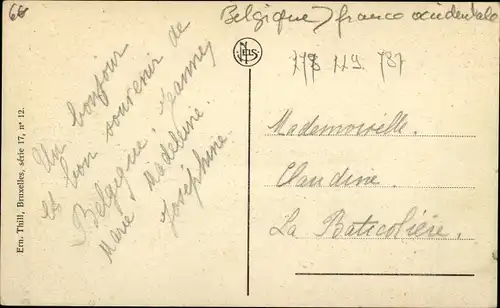 66
Belgique) franco occidentale
Un bonjour
et bon souvenir de
Belgique, Jeanne,
Marie, Madeleine.
Joséphine.
Ern. Thill, Bruxelles, série 17, n° 12.
NELS
778 119 787
Mademoiselle.
Claudine.
La Baticolière.